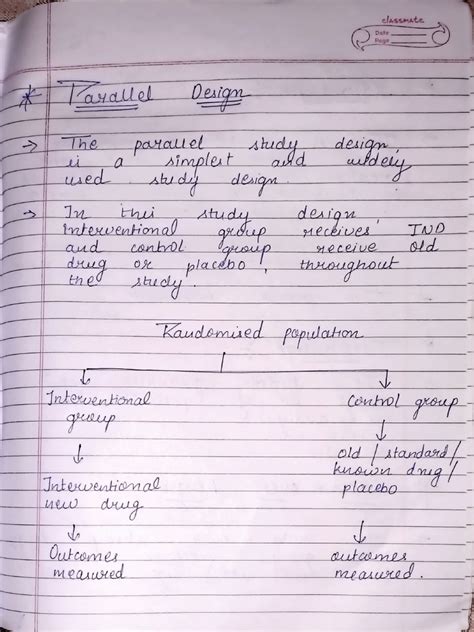 classmate
Date
Page
* Parallel Design
→ The parallel study design,
is a simplest and widely
used study design.
→ In this study design,
Interventional group receives IND
and control group receive old
drug or placebo, throughout
the study.
Randomised population
Interventional group
Control group
Interventional new drug
old / standard / known drug / placebo
Outcomes measured
outcomes measured.